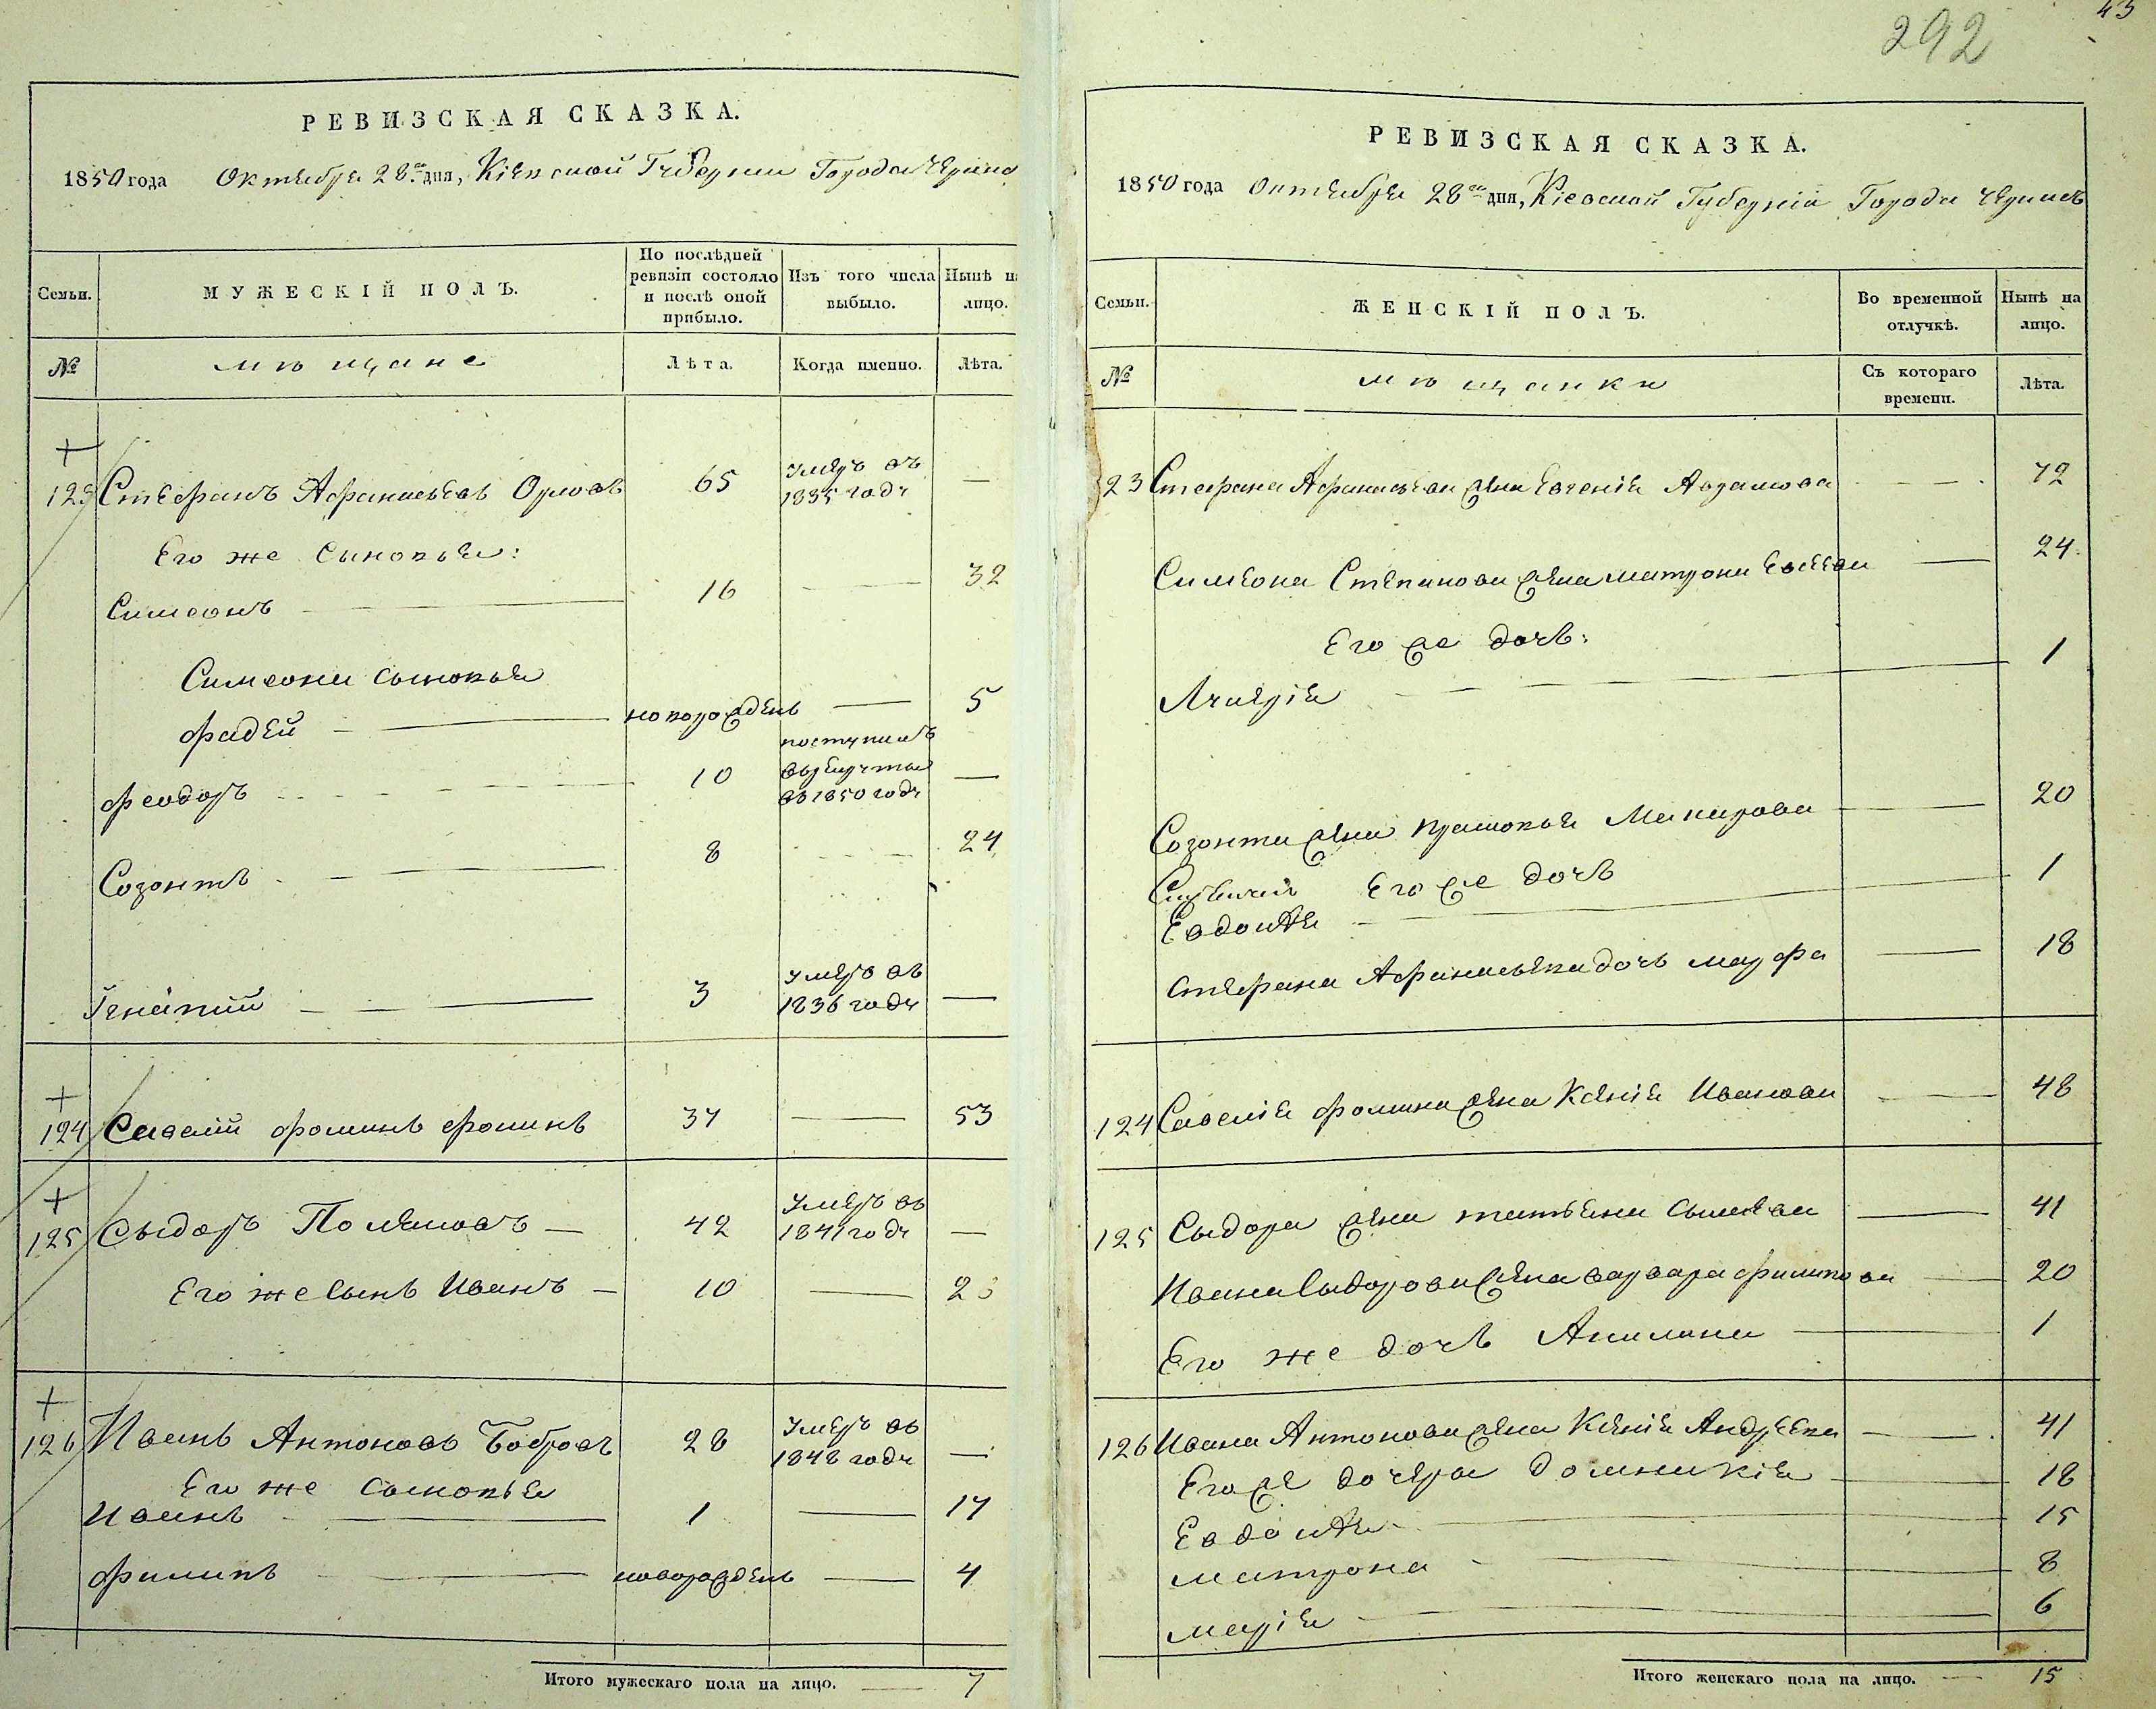 292
43
РЕВИЗСКАЯ СКАЗКА.
1850 года Октября 28го дня, Кіевской Губерніи Города Черкас
Семьи.
МУЖЕСКІЙ ПОЛЪ.
По послѣдней ревизіи состояло и послѣ оной прибыло.
Изъ того числа выбыло.
Нынѣ на лицо.
№
мѣщане
Лѣта.
Когда именно.
Лѣта.
123 Стефанъ Афанасьевъ Орловъ 65 умеръ въ 1835 году —
Его же сыновья:
Симеонъ — 16 — 32
Симеона сыновья
Фадей — новорожденъ — 5
Феодоръ — 10 поступилъ въ рекруты въ 1850 году —
Созонтъ — 8 — 24
Ігнатий — 3 умеръ въ 1836 году —
124 Савелий Фоминъ Фоминъ 37 — 53
125 Сыдоръ Поляковъ — 42 умеръ въ 1841 году —
Его же сынъ Иванъ — 10 — 2
126 Иванъ Антоновъ Бобровъ 28 умеръ въ 1848 году —
Его же сыновья
Иванъ — 1 — 17
Филипъ — новорожденъ — 4
Итого мужескаго пола на лицо. — 7
РЕВИЗСКАЯ СКАЗКА.
1850 года Октября 28го дня, Кіевской Губерніи Города Черкасъ
Семьи.
ЖЕНСКІЙ ПОЛЪ.
Во временной отлучкѣ.
Нынѣ на лицо.
№
мѣщанки
Съ котораго времени.
Лѣта.
23 Стефана Афанасьева жена Евгенія — 72
Симеона Степанова жена Матрона — 24
Его же дочь:
Лукерія — 1
Созонта жена Прасковья Макарова — 20
Его же дочь
Евдокія — 1
Стефана Афанасьева дочь Марфа — 18
124 Савелія Фомина жена Ксенія Иванова — 48
125 Сыдора жена Татьяна — 41
Ивана Сыдорова жена Варвара Филипова — 20
Его же дочь Акилина — 1
126 Ивана Антонова жена Ксенія Андреева — 41
Его же дочери Домникія — 18
Евдокія — 15
Матрона — 8
Марія — 6
Итого женскаго пола на лицо. — 15